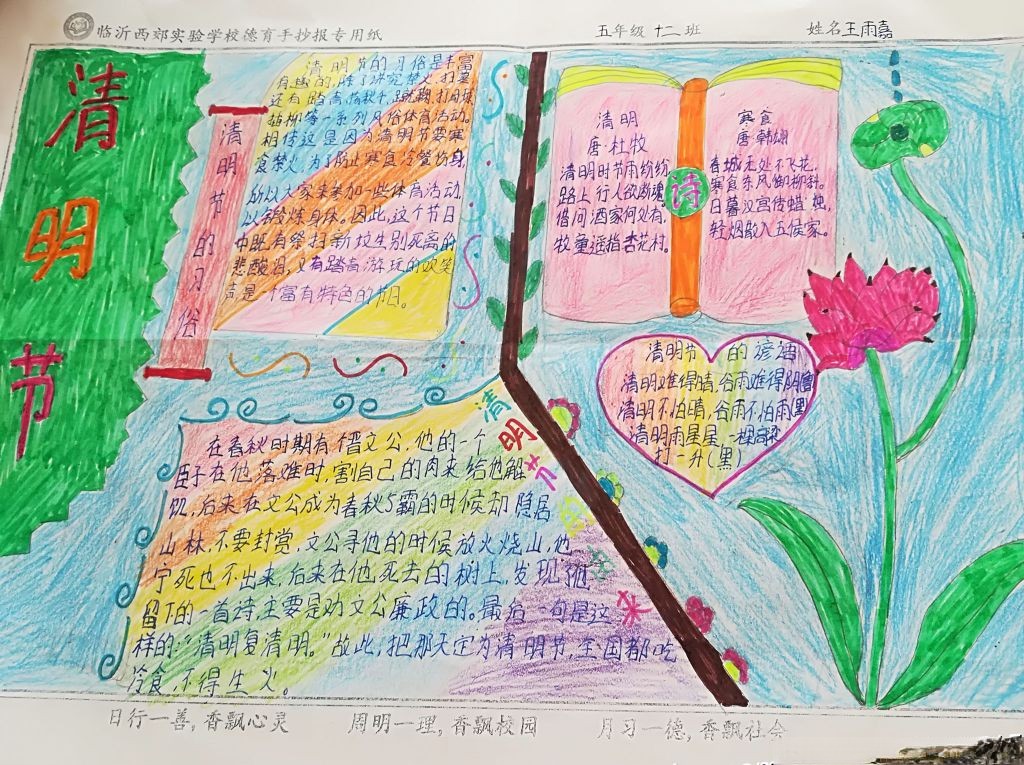 临沂西郊实验学校德育手抄报专用纸
五年级 十二 班
姓名王雨嘉
清明节
清明节的习俗
清明节的习俗是丰富
有趣的,除了讲究禁火,扫墓
还有踏青,荡秋千,蹴鞠,打马球
插柳等一系列风俗体育活动。
相传这是因为清明节要寒
食禁火,为了防止寒食冷餐伤身,
所以大家来参加一些体育活动,
以锻炼身体。因此,这个节日
中既有祭扫新坟生别死离的
悲酸泪,又有踏青游玩的欢笑
声是一个富有特色的节日。
清明
唐·杜牧
清明时节雨纷纷,
路上行人欲断魂,
借问酒家何处有,
牧童遥指杏花村。
诗
寒食
唐·韩翃
春城无处不飞花,
寒食东风御柳斜。
日暮汉宫传蜡烛,
轻烟散入五侯家。
清明节的谚语
清明难得晴,谷雨难得阴
清明不怕晴,谷雨不怕雨
清明雨星星,一棵高粱
打一升(黑)
清明节的由来
在春秋时期有个晋文公,他的一个
臣子在他落难时,割自己的肉来给他解
饥,后来在文公成为春秋5霸的时候却隐居
山林,不要封赏,文公寻他的时候放火烧山,他
宁死也不出来,后来在他死去的树上,发现他
留下的一首诗,主要是劝文公廉政的。最后一句是这
样的:“清明复清明。”故此,把那天定为清明节,全国都吃
冷食,不得生火。
日行一善,香飘心灵
周明一理,香飘校园
月习一德,香飘社会